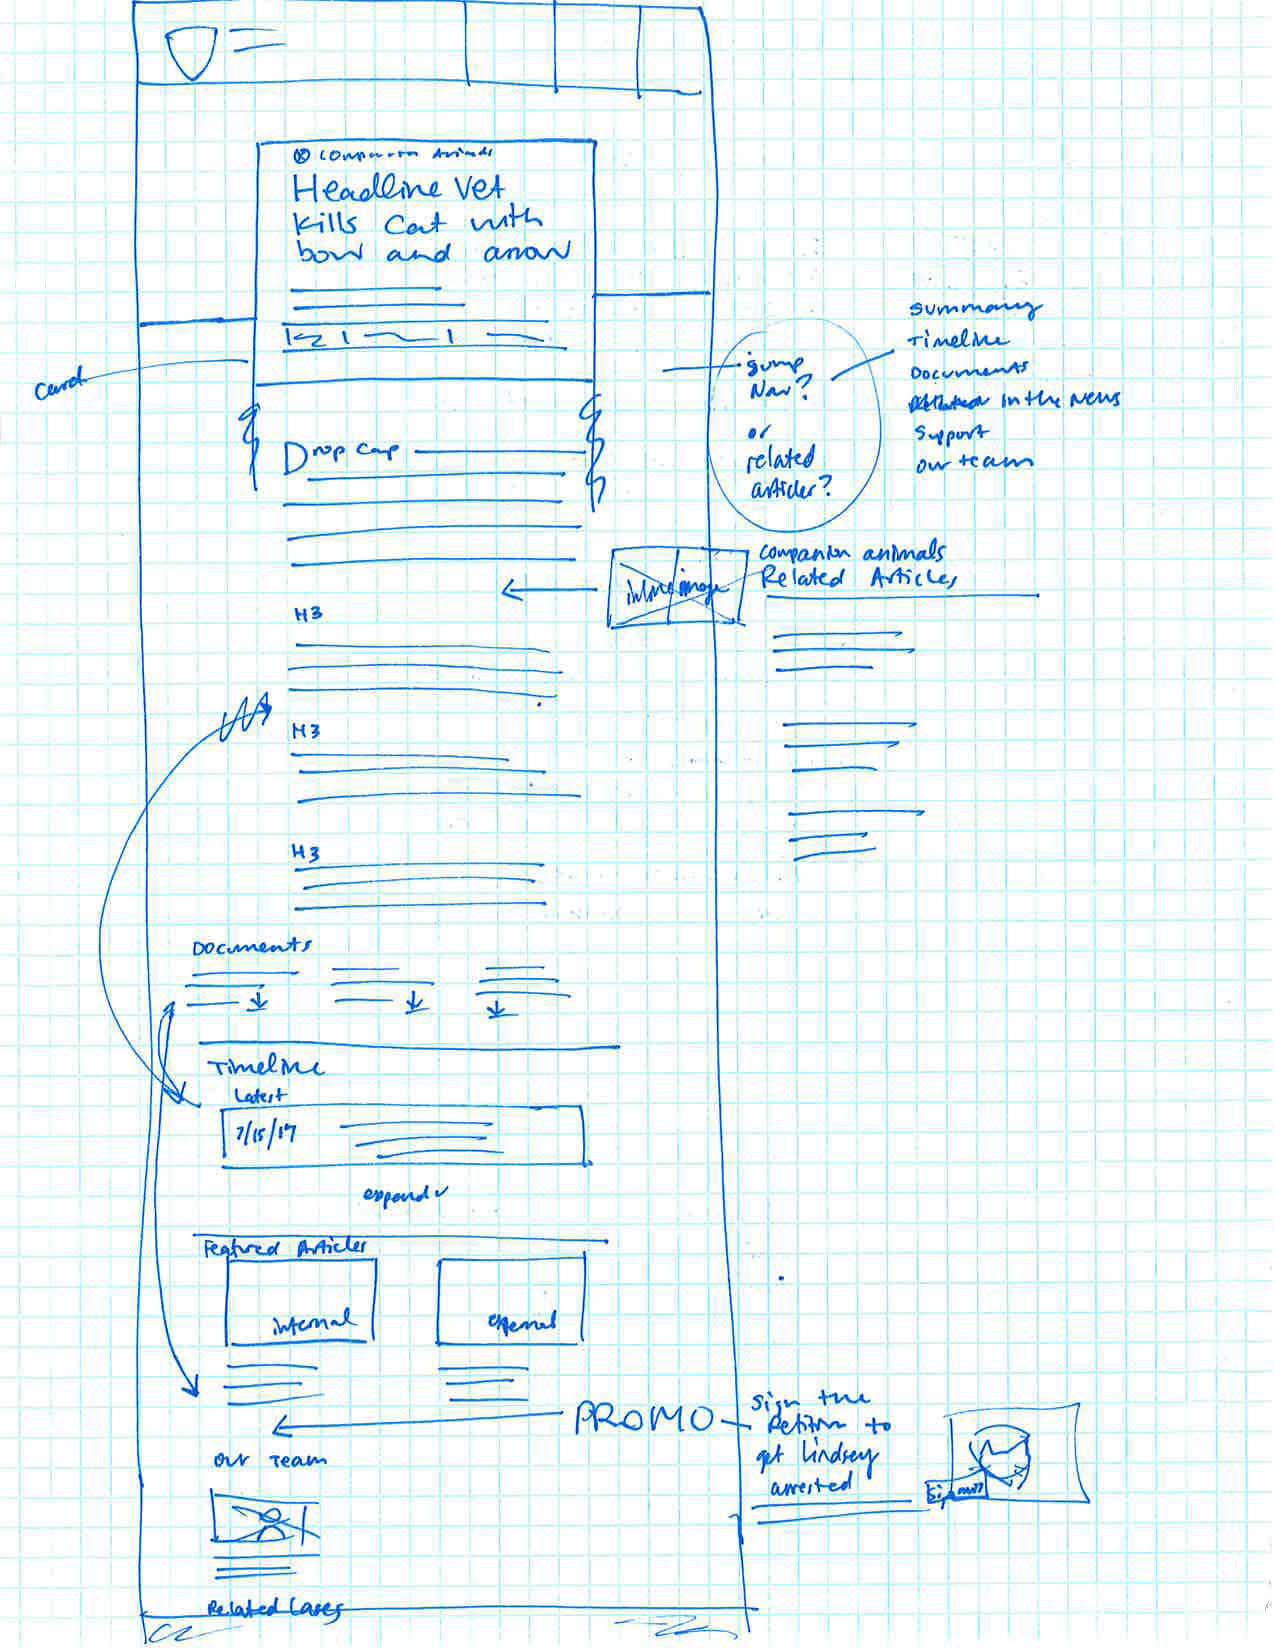 Companion Animals
Headline Vet
Kills Cat with
bow and arrow
Card
Drop Cap
jump
Nav?
or
related
articles?
Summary
Timeline
Documents
Related In the News
Support
Our team
inline image
Companion animals
Related Articles
H3
H3
H3
Documents
Timeline
Latest
7/15/17
expand
Featured Articles
internal
external
PROMO
Sign the
Petition to
get Lindsey
arrested
Our Team
Related Cases